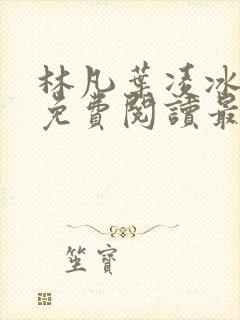 林凡葉凌冰
免費閱讀最
筆寶